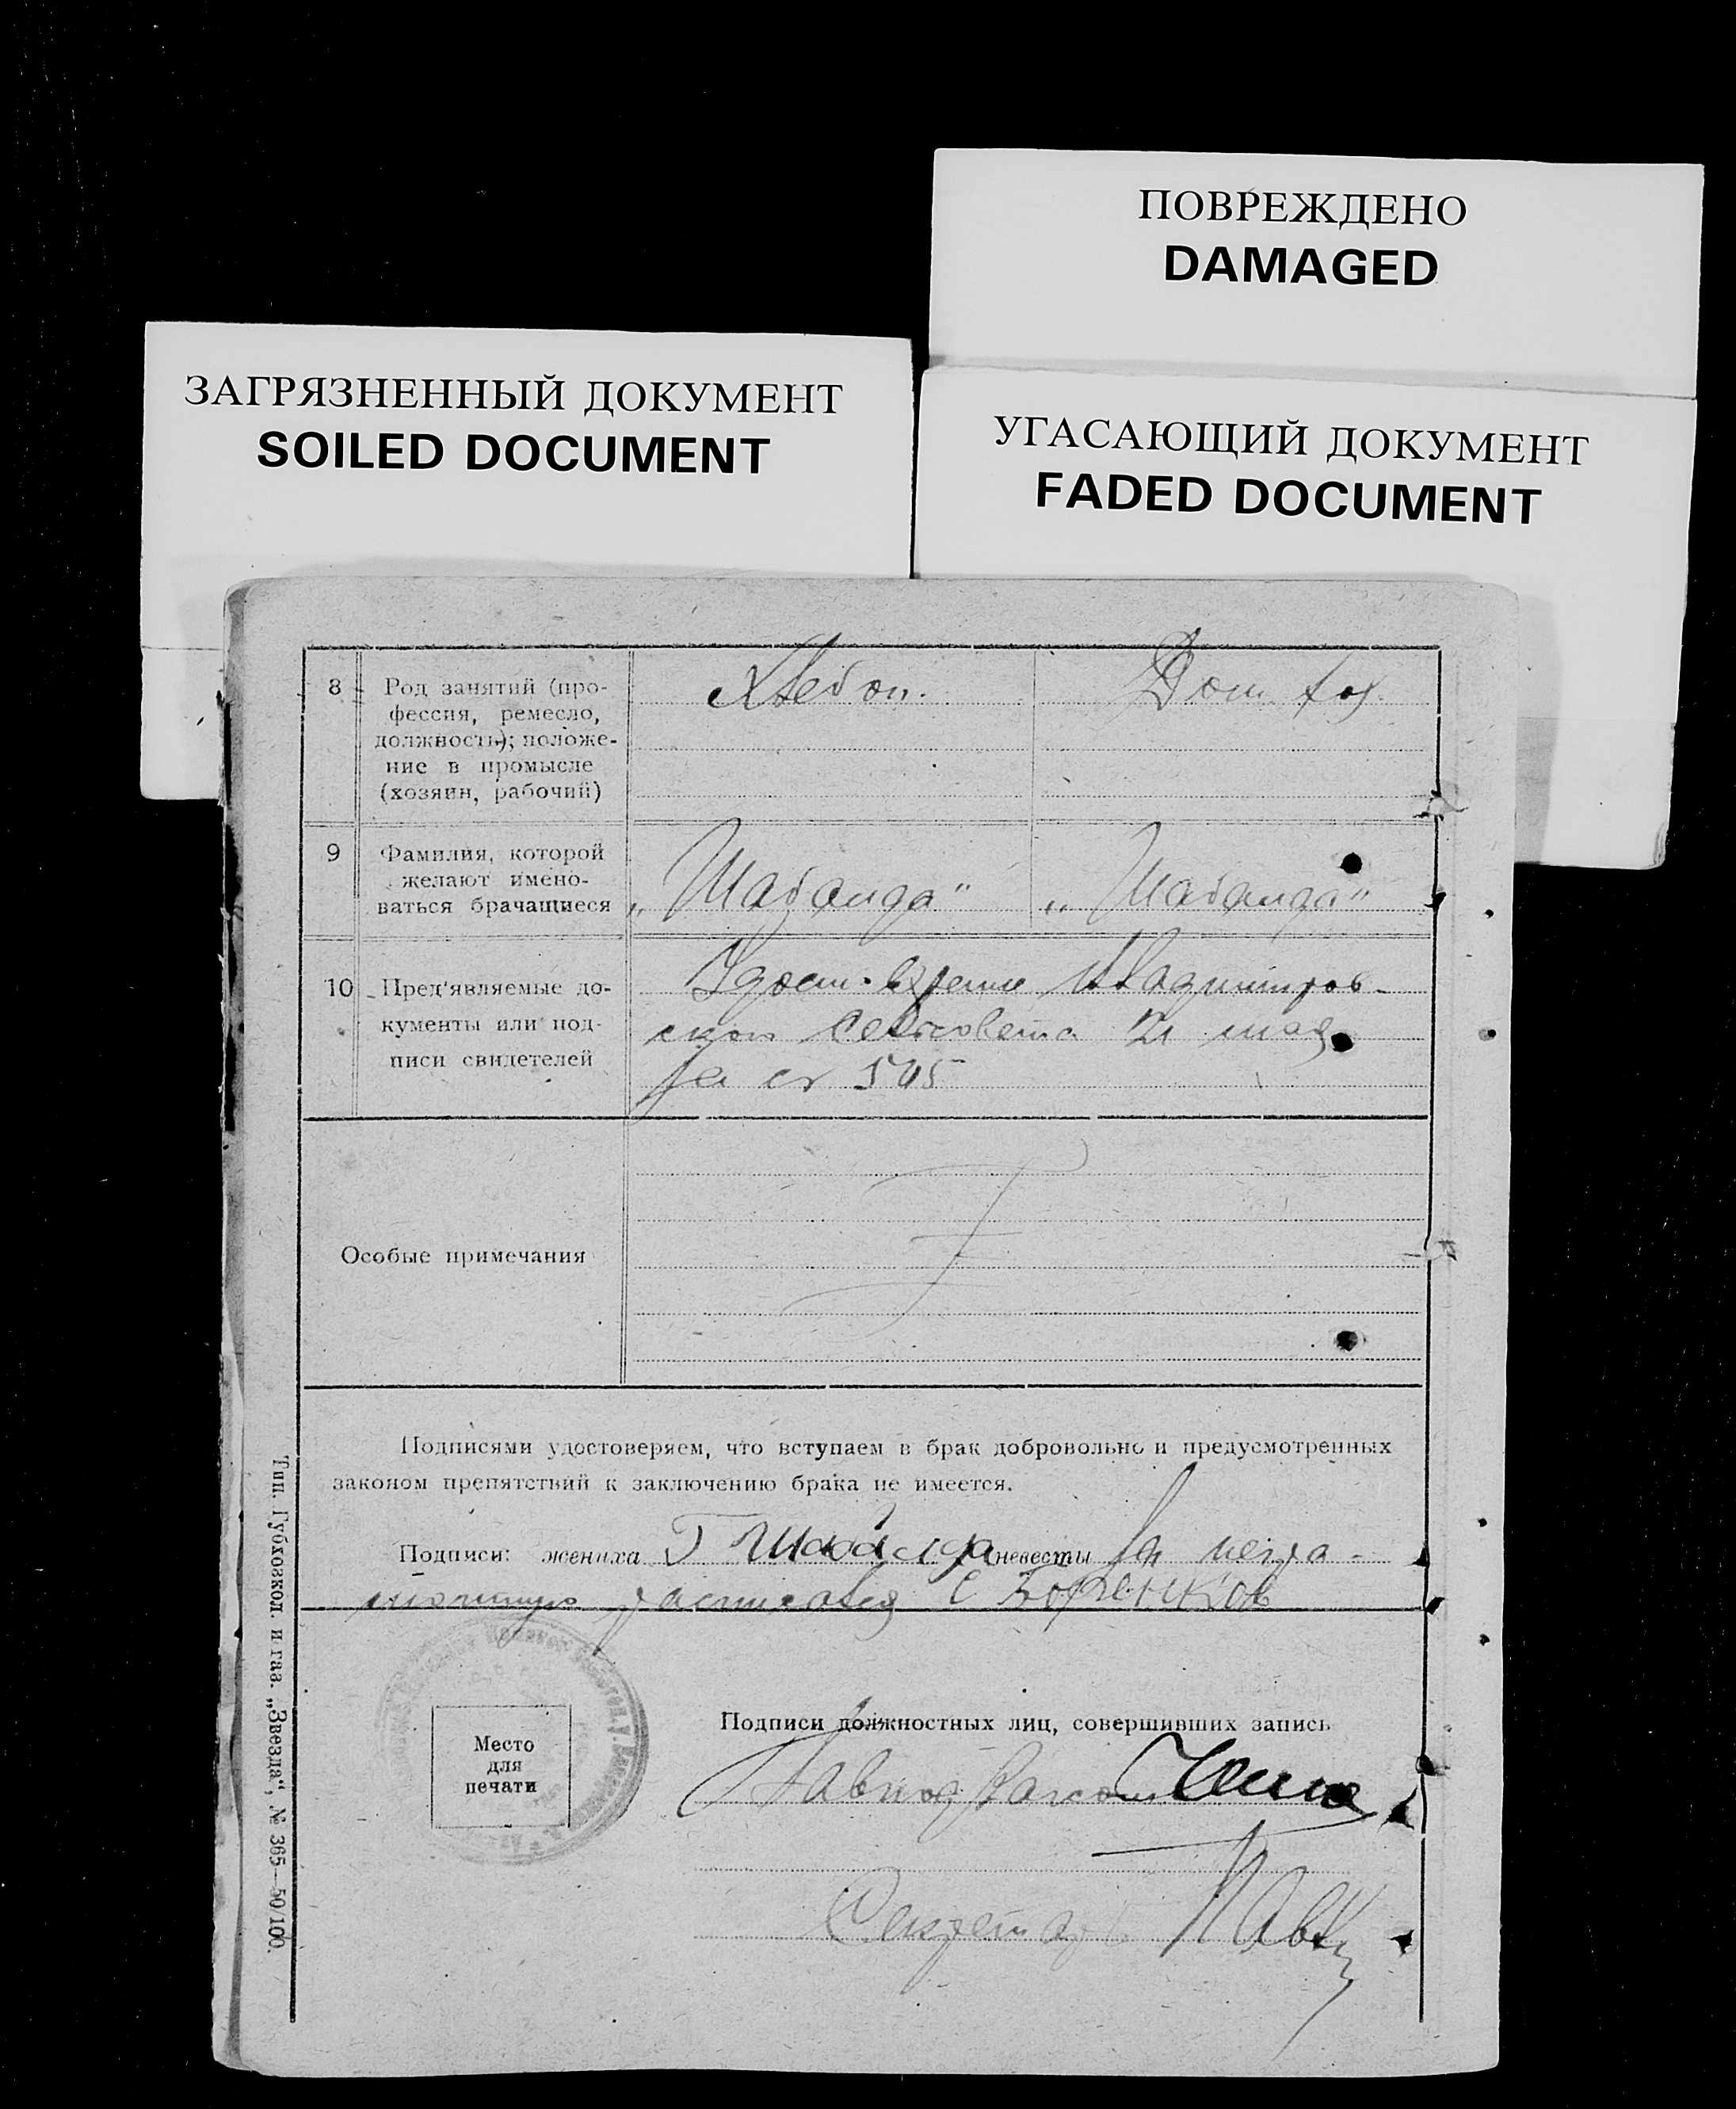 ПОВРЕЖДЕНО
DAMAGED
ЗАГРЯЗНЕННЫЙ ДОКУМЕНТ
SOILED DOCUMENT
УГАСАЮЩИЙ ДОКУМЕНТ
FADED DOCUMENT
8 Род занятий (про-
фессия, ремесло,
должность); положе-
ние в промысле
(хозяин, рабочий)
Хлебоп. Дом. хоз.
9 Фамилия, которой
желают имено-
ваться брачащиеся
„Шабанда" „Шабанда"
10 Пред'являемые до-
кументы или под-
писи свидетелей
Удост. Владимиров-
ского сельсовета 21 мая
за № 505
Особые примечания
Подписями удостоверяем, что вступаем в брак добровольно и предусмотренных
законом препятствий к заключению брака не имеется.
Подписи: жениха Г Шабанда невесты за негра-
мотную расписався С
Место
для
печати
Подписи должностных лиц, совершивших запись
Секретарь
Тип. Губхозкол. и газ. „Звезда", № 365—50/100.